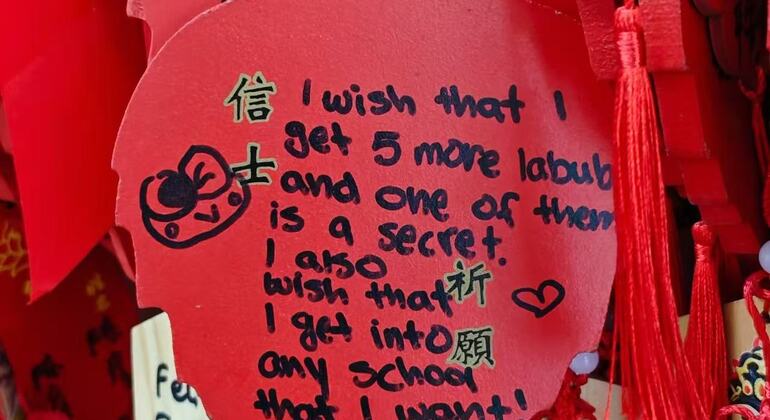 信士
I wish that I
get 5 more labub
and one of them
is a secret.
I also
wish that
I get into
any school
that I want!
祈願